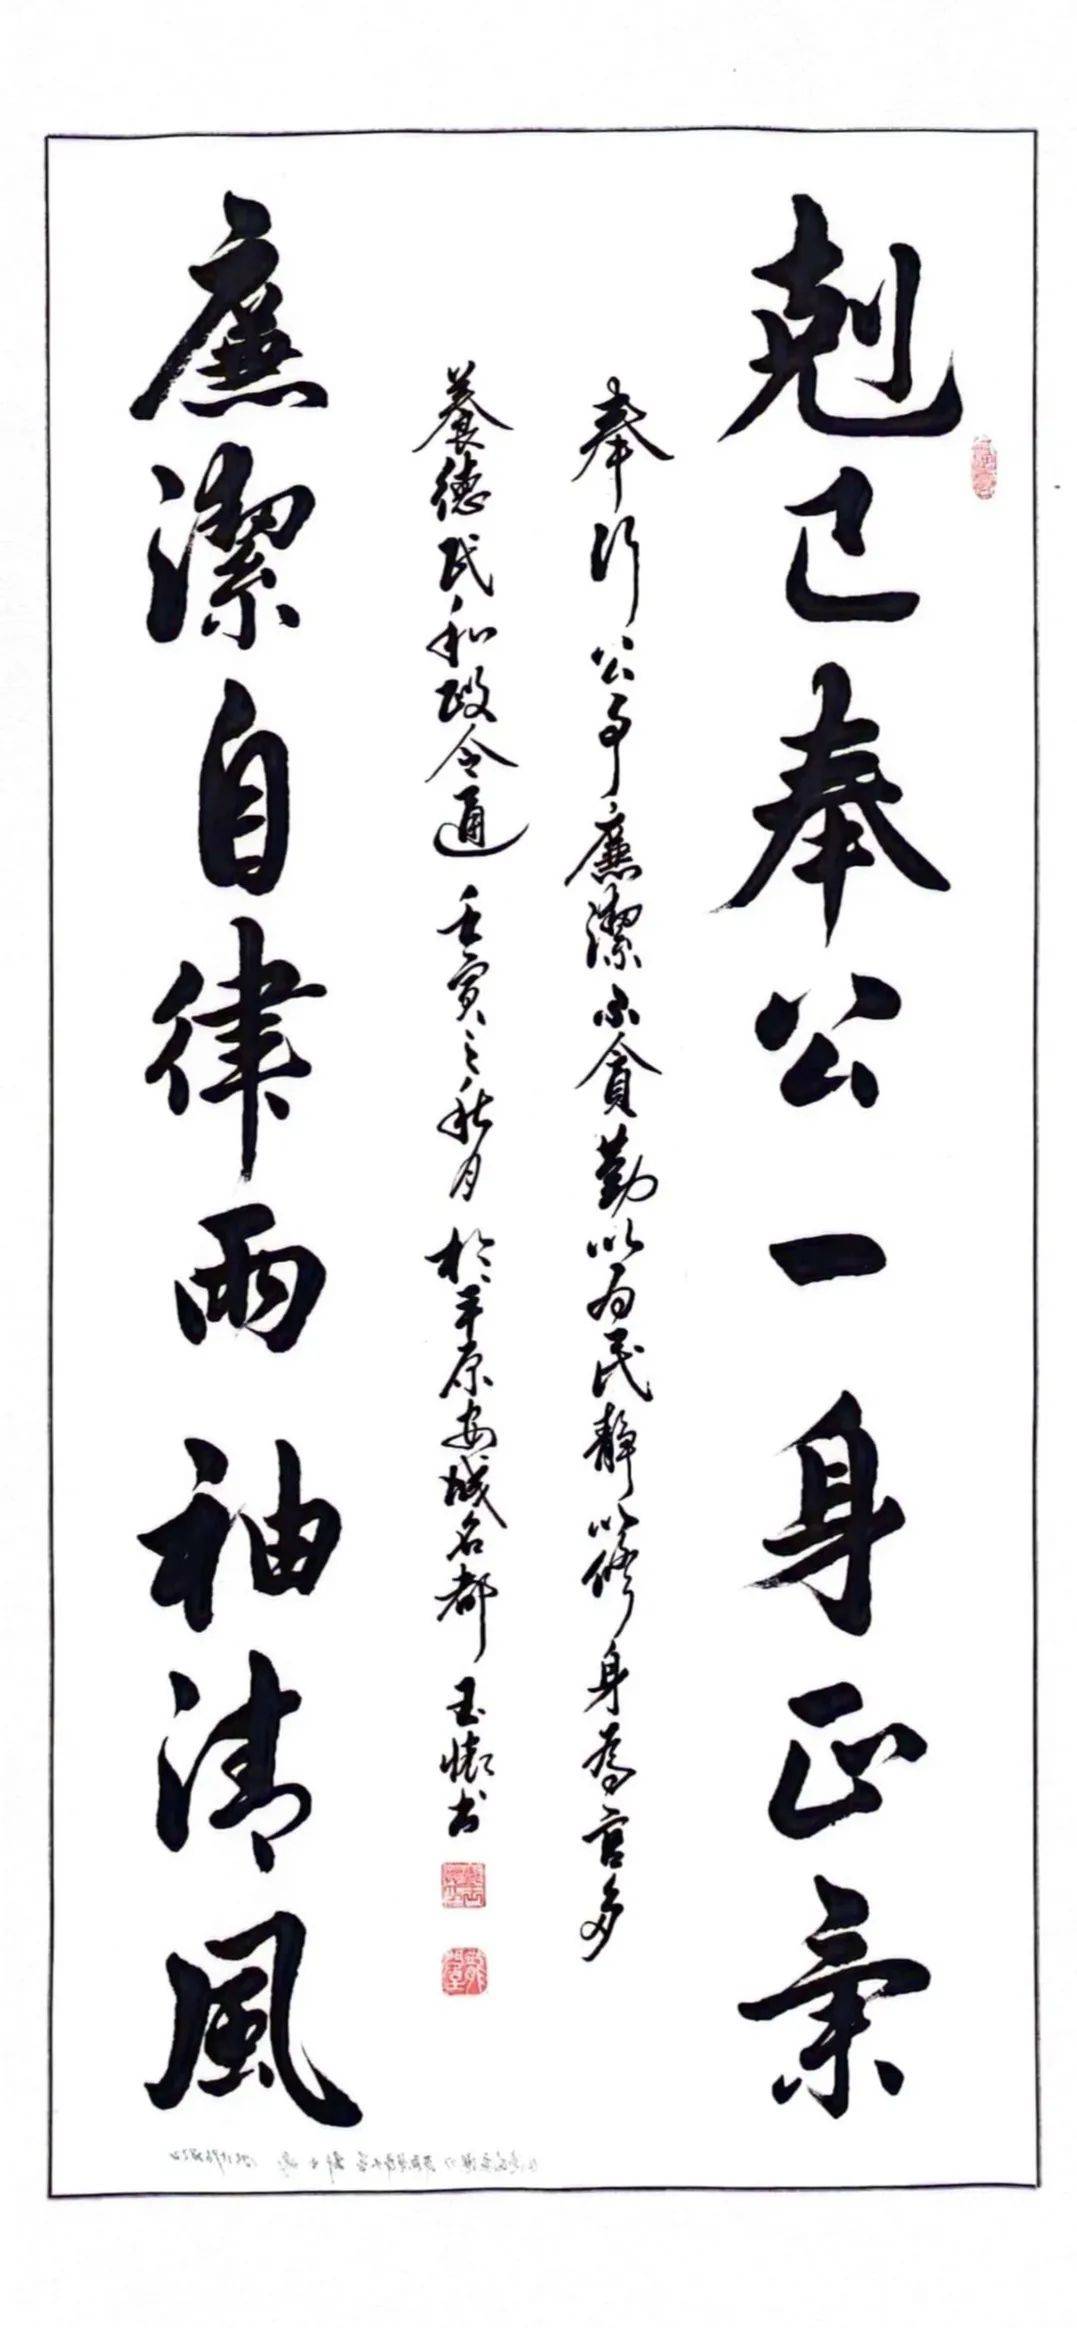 剋己奉公一身正氣
奉行公事廉潔不貪勤以为民静以修身為官多
養德民和政令通 壬寅之秋月 於平原安城名都 玉懷书
廉潔自律兩袖清風